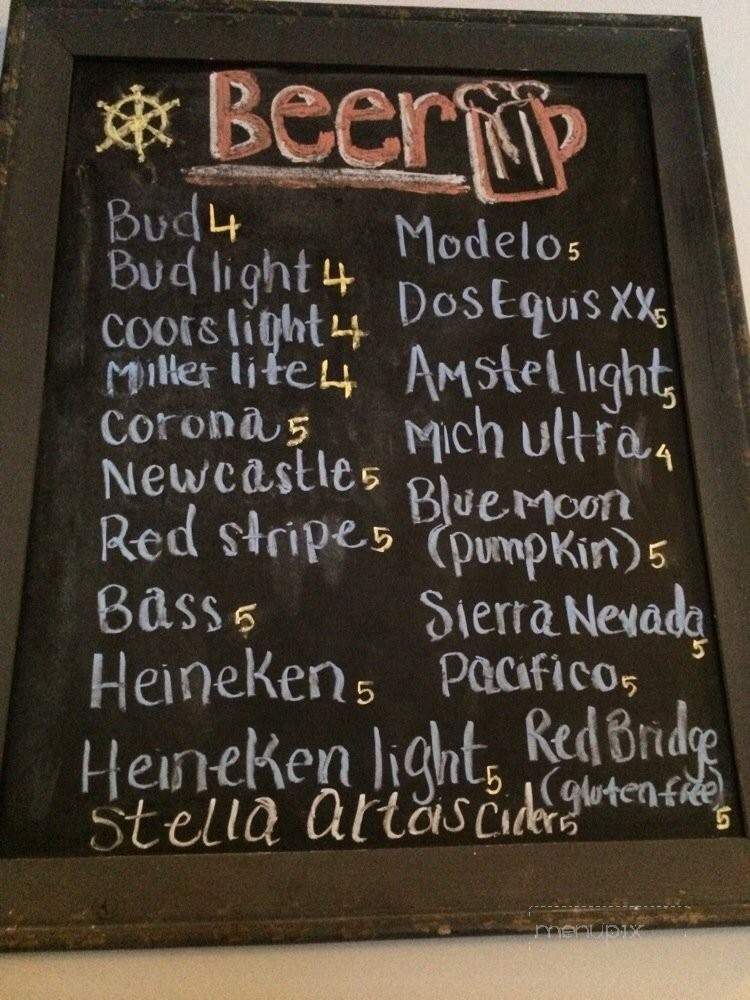 Beer
Bud 4
Bud light 4
Coors light 4
Miller lite 4
Corona 5
Newcastle 5
Red stripe 5
Bass 5
Heineken 5
Heineken light 5
Stella Artois Cider 5
Modelo 5
Dos Equis XX 5
Amstel light 5
Mich Ultra 4
Blue Moon
(pumpkin) 5
Sierra Nevada
5
Pacifico 5
Red Bridge
(gluten free)
5
menupix